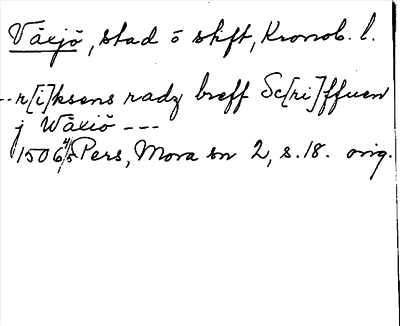 Växjö, stad o stift, Kronob. l.
--- r[i]ksens radz breff Sc[ri]ffuen
j Wäxiö ---
1506 4/5 Pers, Mora sn 2, s. 18. orig.